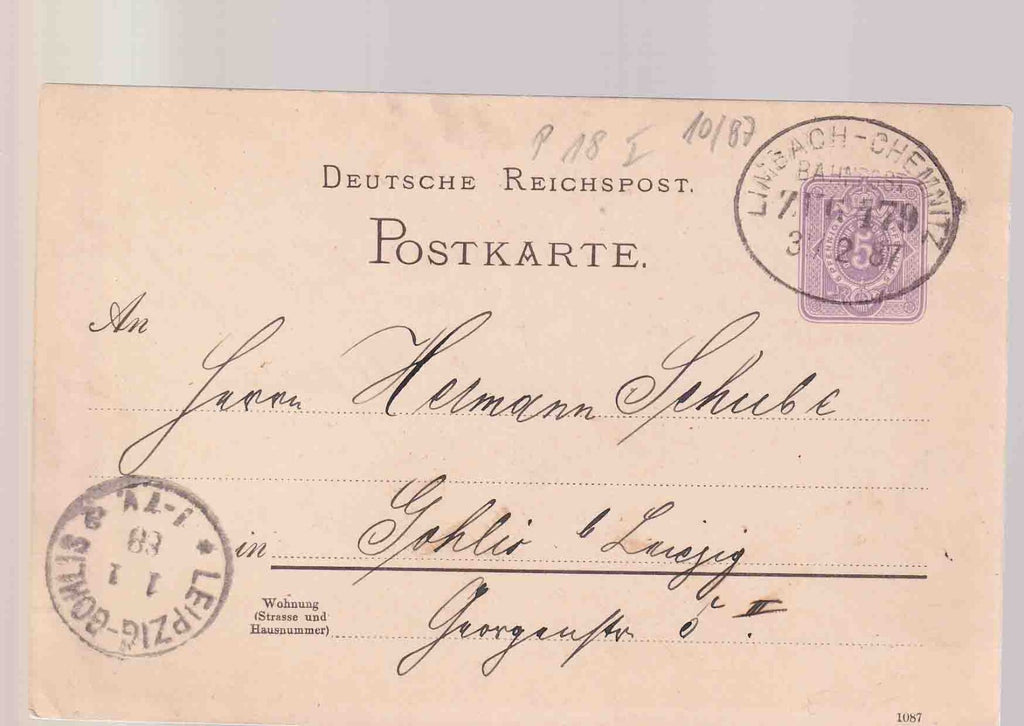 P 18 I 10/87
LIMBACH-CHEMNITZ
BAHNPOST
ZUG 179
31 12 87
DEUTSCHE REICHSPOST.
POSTKARTE.
5
An
Herrn Hermann Schube
in Gohlis b Leipzig
Wohnung
(Strasse und
Hausnummer)
Georgenstr 5 II.
* LEIPZIG-GOHLIS
1 1
88
1-2N.
1087